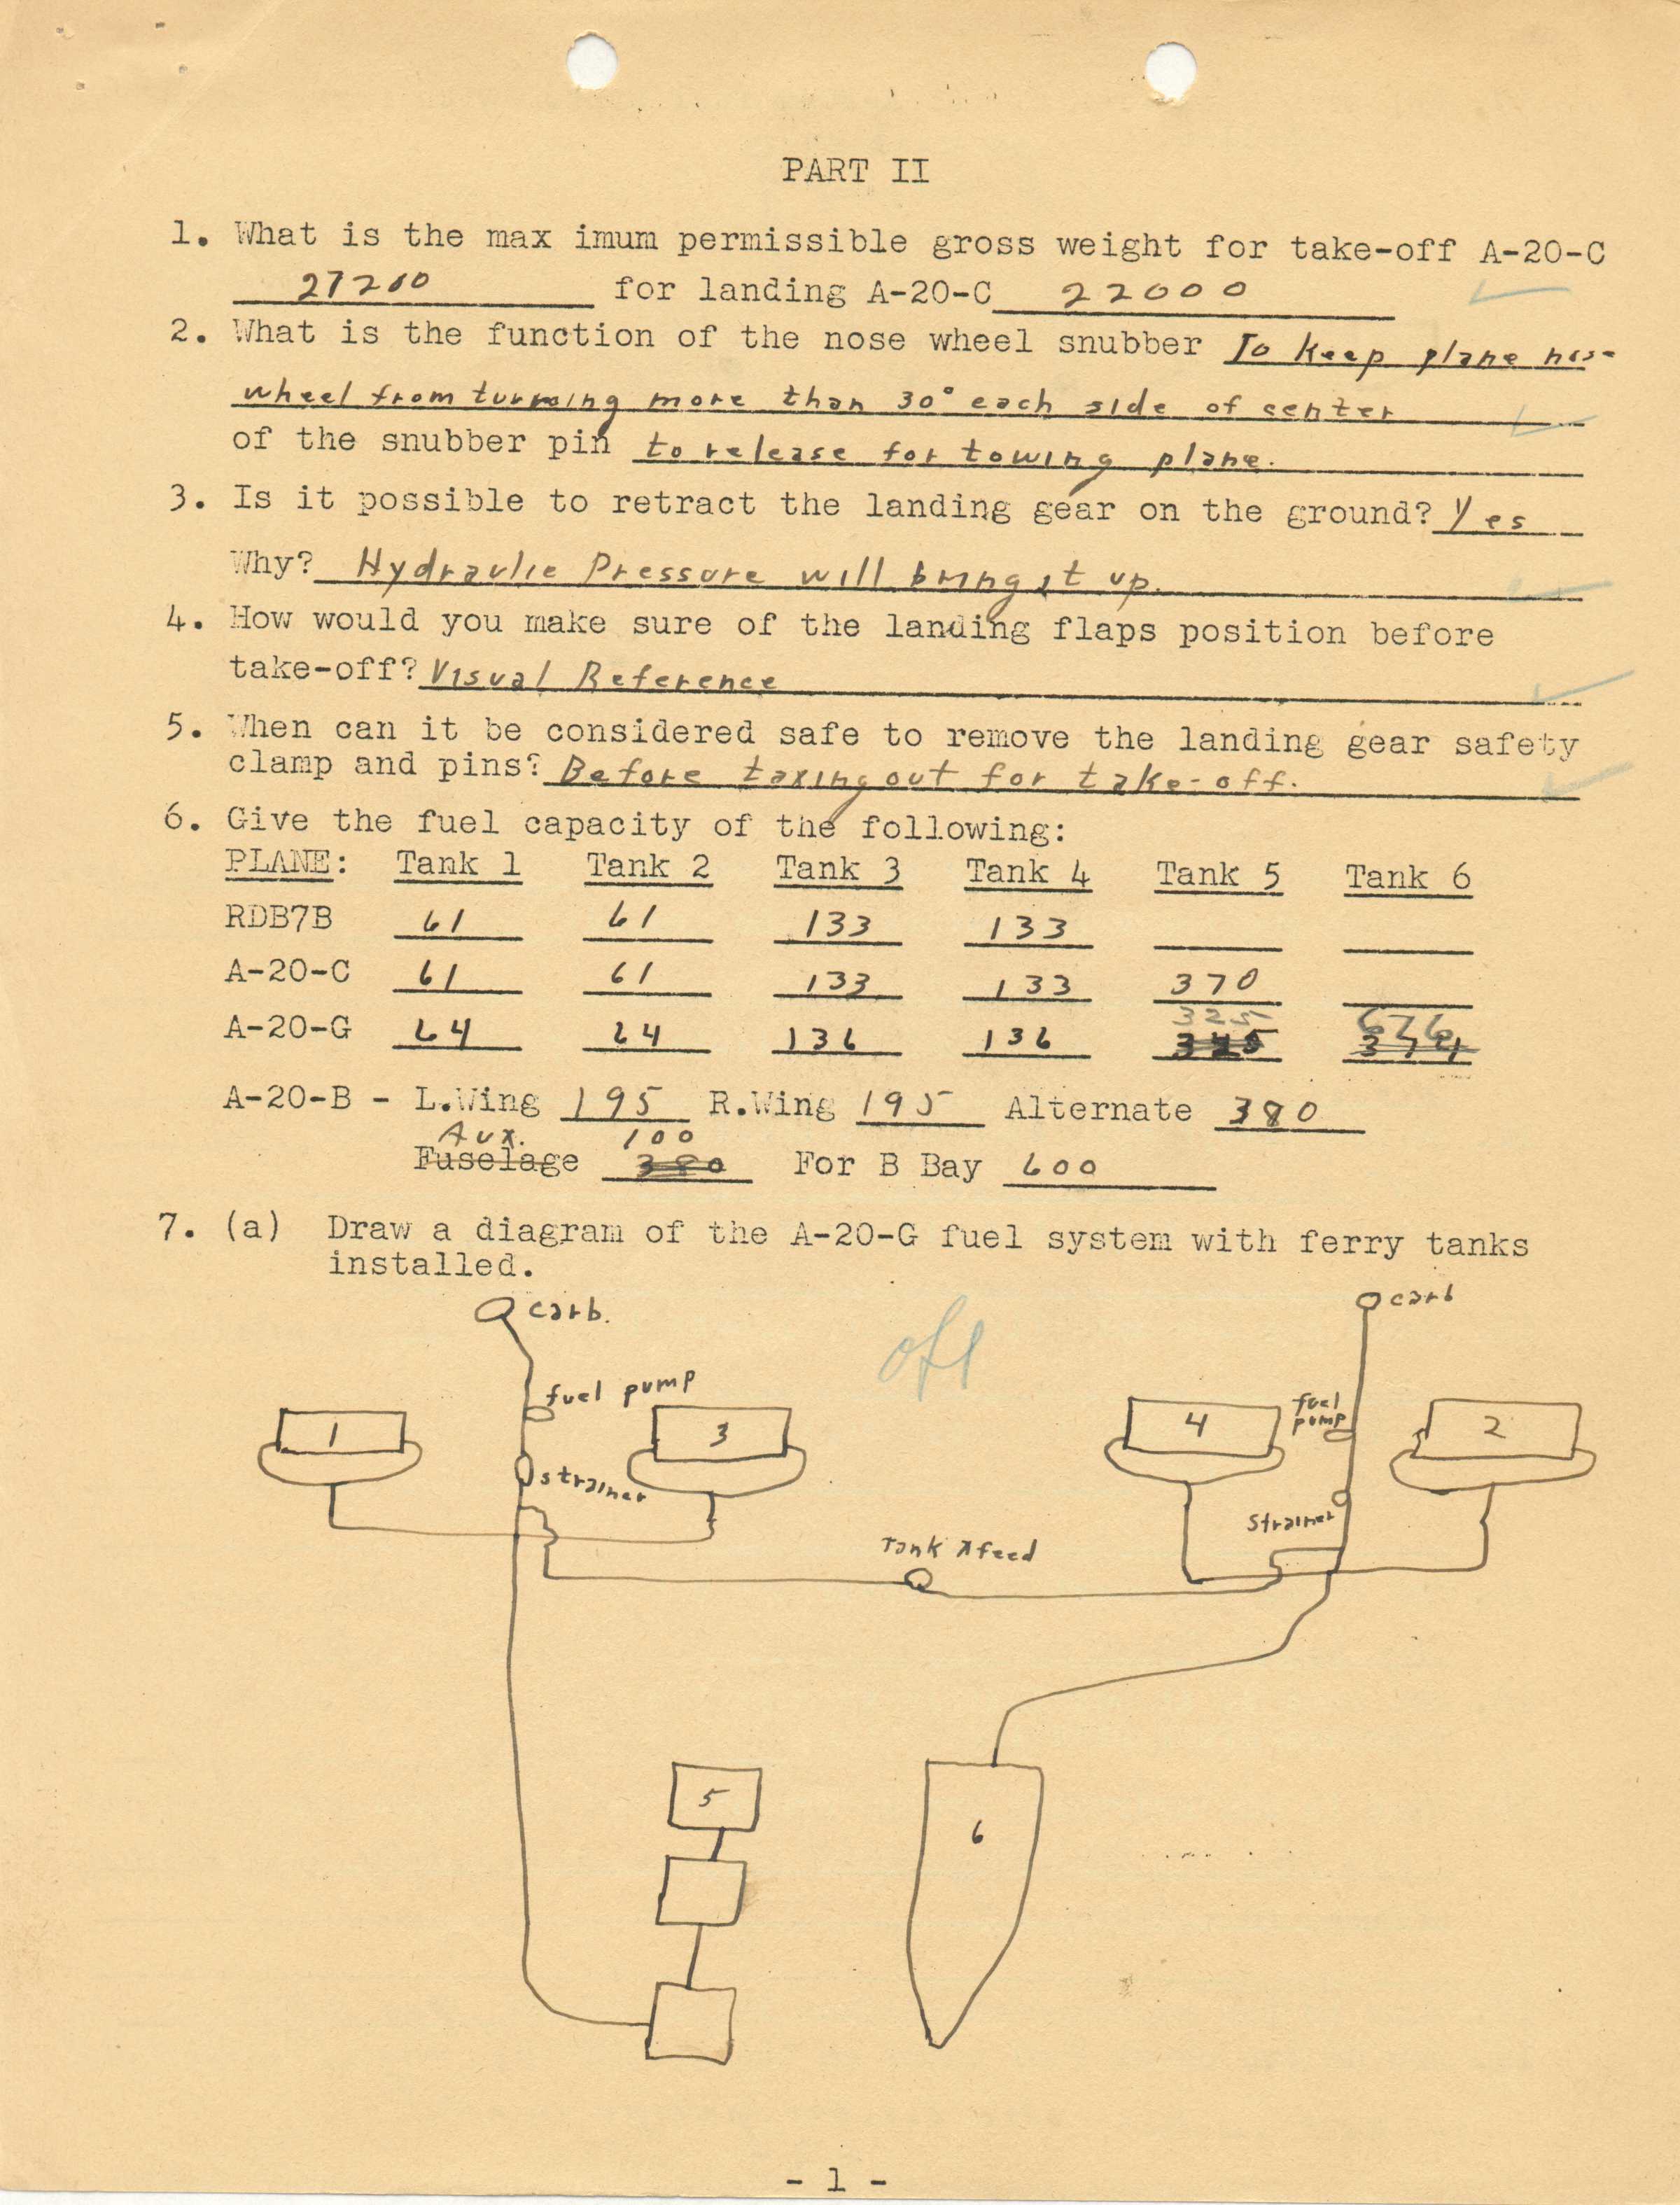 PART II
1. What is the max imum permissible gross weight for take-off A-20-C
27200 for landing A-20-C 22000
2. What is the function of the nose wheel snubber To keep plane nose
wheel from turning more than 30° each side of center
of the snubber pin to release for towing plane.
3. Is it possible to retract the landing gear on the ground? Yes
Why? Hydraulic Pressure will bring it up.
4. How would you make sure of the landing flaps position before
take-off? Visual Reference
5. When can it be considered safe to remove the landing gear safety
clamp and pins? Before taxing out for take-off.
6. Give the fuel capacity of the following:
PLANE: Tank 1 Tank 2 Tank 3 Tank 4 Tank 5 Tank 6
RDB7B 61 61 133 133
A-20-C 61 61 133 133 370
325 676
A-20-G 64 64 136 136
A-20-B - L.Wing 195 R.Wing 195 Alternate 380
Aux. 100
Fuselage 380 For B Bay 600
7. (a) Draw a diagram of the A-20-G fuel system with ferry tanks
installed.
carb. carb
fuel pump fuel pump
1 3 4 2
strainer strainer
Tank Xfeed
5
6
- 1 -